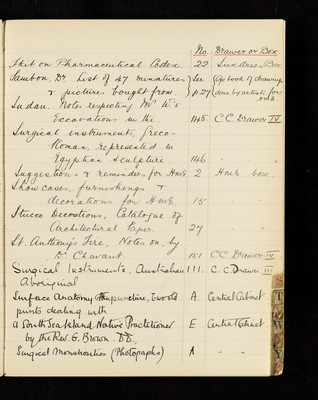 No. Drawer or Box
Skit on Pharmaceutical Codex 22 Sundries Box
Sambon, Dr. List of 47 miniatures See (Og book of drawings
& pictures bought from p.27 done by artists for
H.M.E.
Sudan. Notes respecting Mr W's
Excavations in the 1145 C.C. Drawer IV
Surgical instruments, Greco-
Roman, represented in
Egyptian Sculpture. 1146 " "
Suggestions & reminders for H.M.E. 2 H.M.E. box.
Show cases, furnishings &
decorations for H.M.E. 15 " "
Stucco Decorations, Catalogue of
Architectural Paper. 27 " "
St. Anthony's Fire, Notes on, by
Dr. Chavant. 151 C.C. Drawer IV
Surgical Instruments, Australian 111. C.C Drawer III
Aboriginal
Surface Anatomy & Acupuncture, two old A. Central Cabinet
prints dealing with
A South Sea Island Native Practitioner E Central Cabinet
by the Rev. G. Brown. D.D.,
Surgical Monstrosities (Photographs) A " "
S
T
W
Y